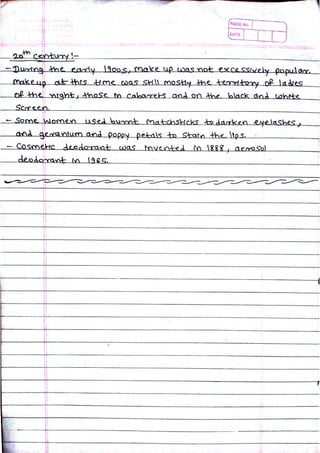 PAGE NO.
DATE
20th century!-
- During the early 1900s, make up was not excessively popular.
make up at this time was still mostly the territory of ladies
of the night, those in cabarets and on the black and white
screen.
- Some women used burnt matchsticks to darken eyelashes,
and geranium and poppy petals to stain the lips.
- Cosmetic deodorant was invented in 1888, aerosol
deodorant in 1965.